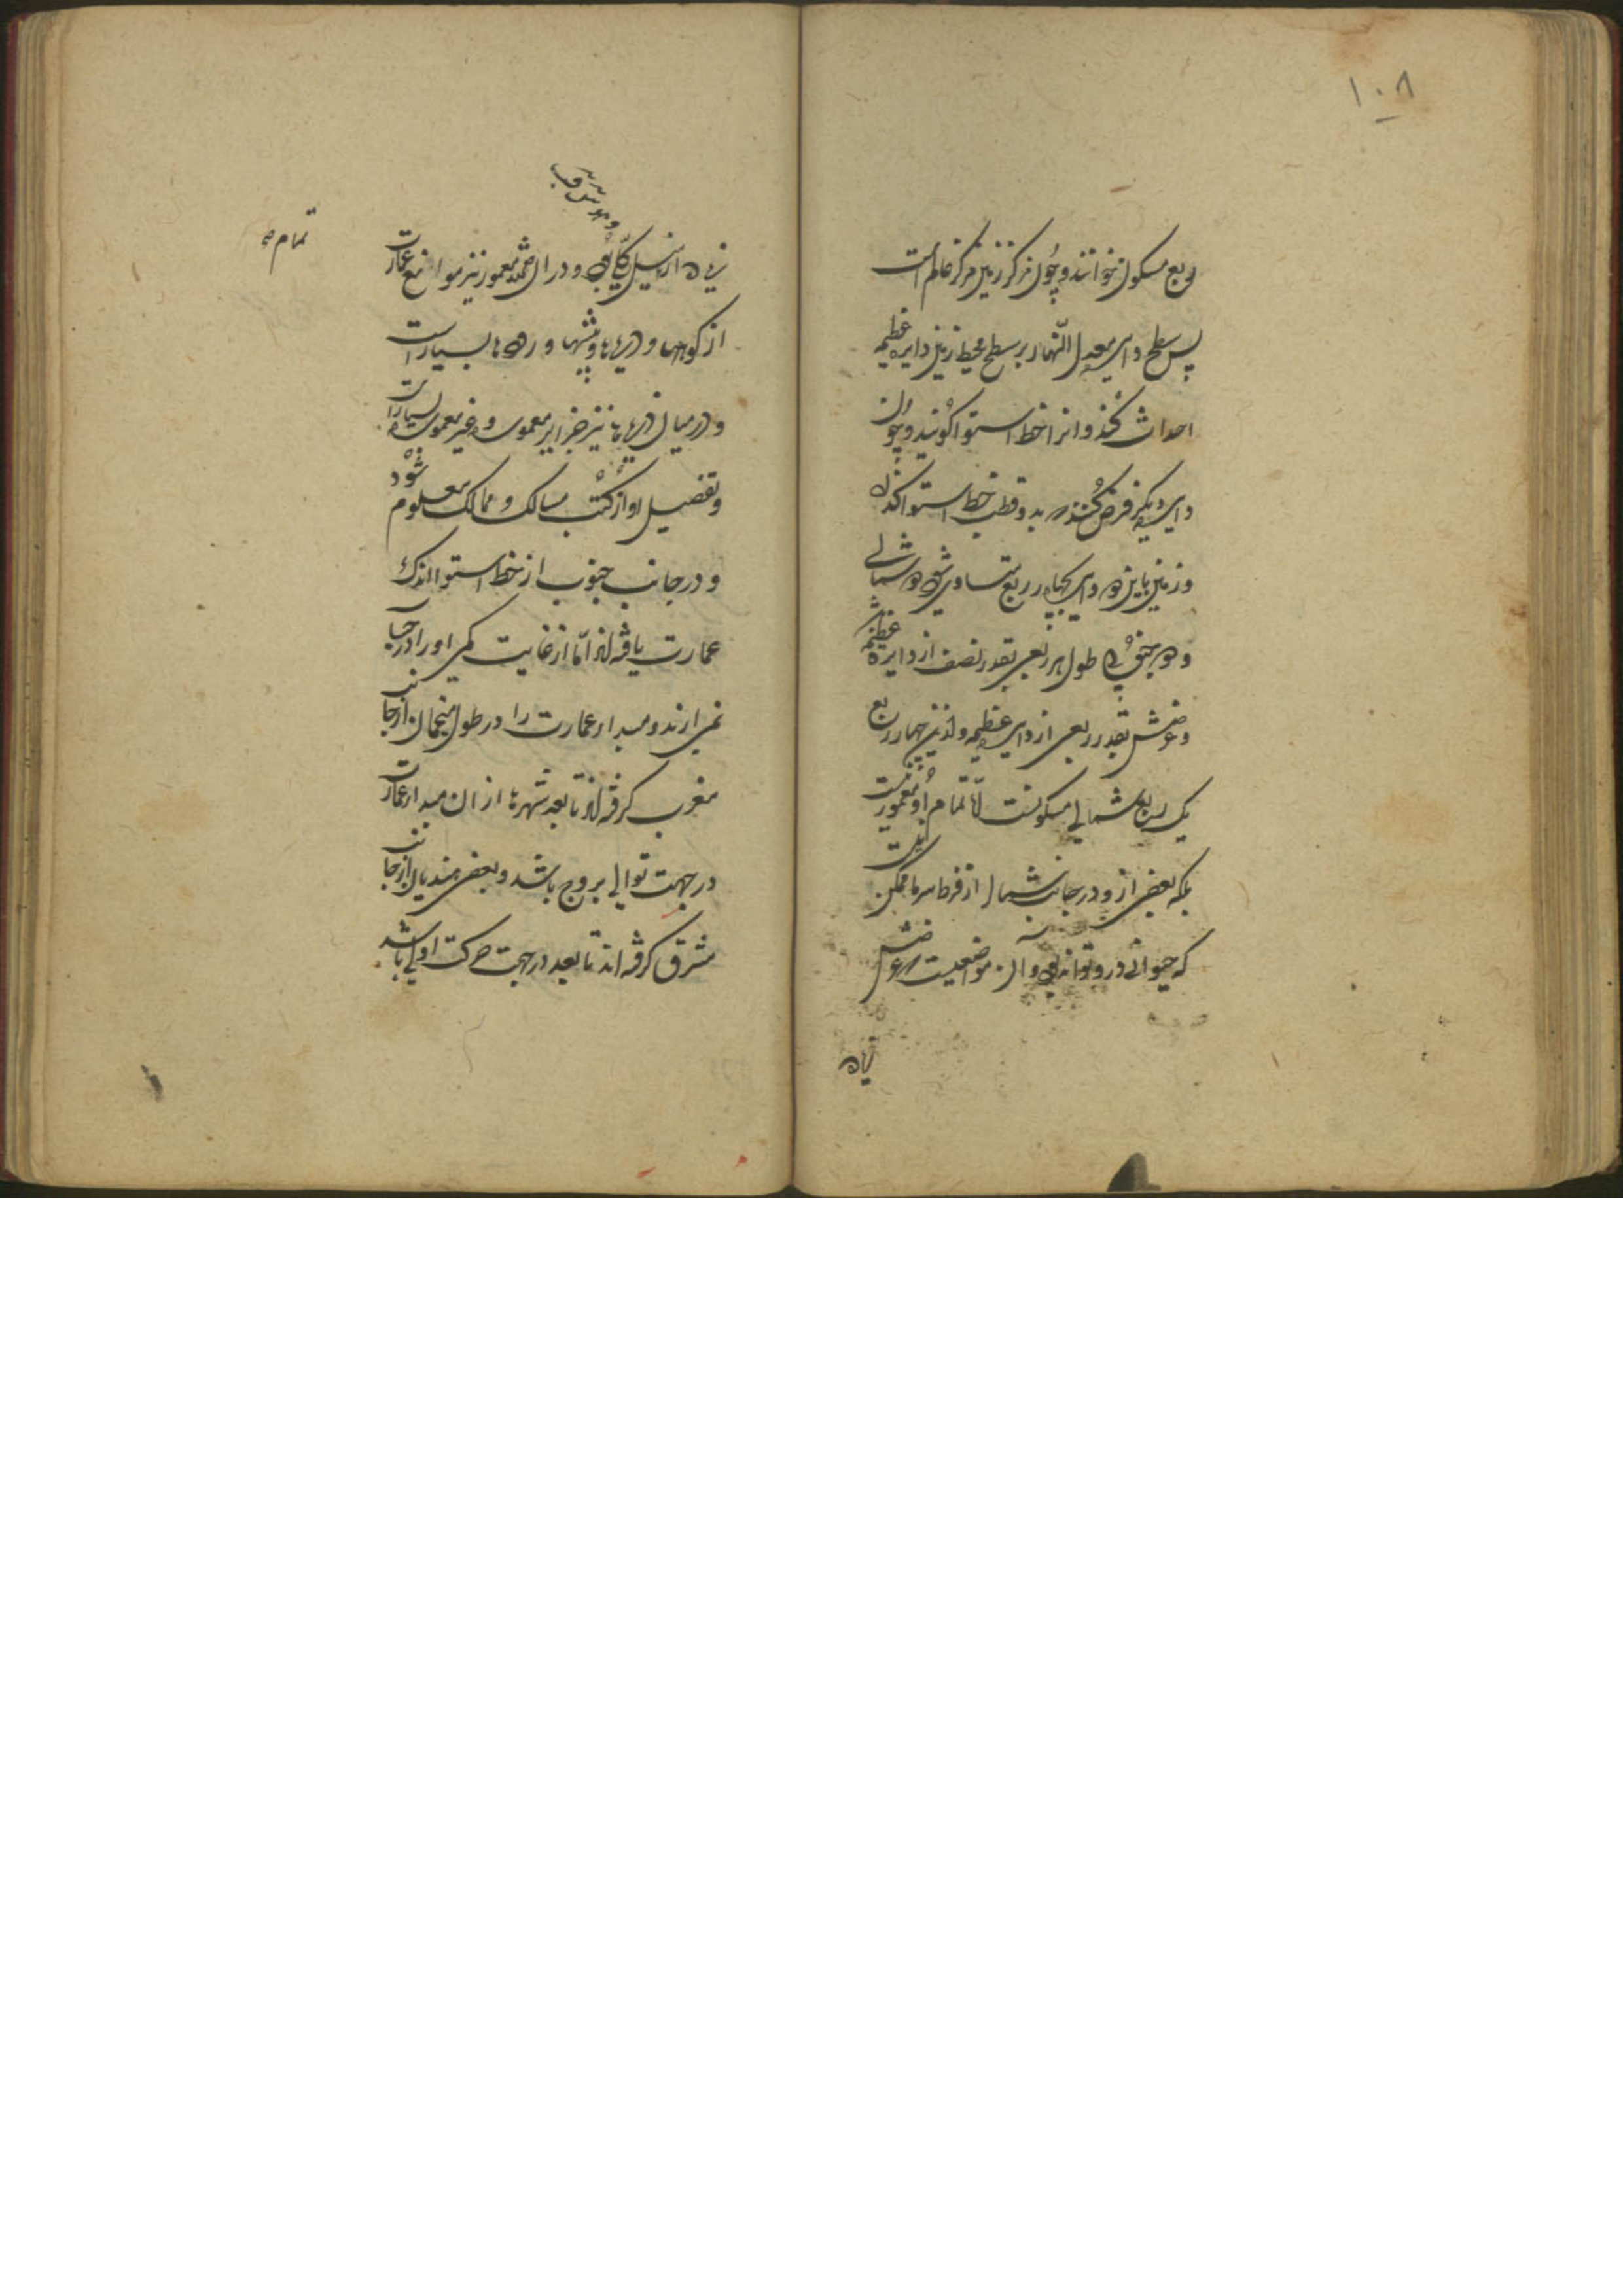 ۱۰۸
ربع مسکون خوانند و چون مرکز زمین مرکز عالم است
پس سطح دایره معدل النهار بر سطح محیط زمین دایره عظیمه
احداث کند و انرا خط استوا گویند و چون
دایره دیگر فرض کنند که بدو قطب خط استوا گذرد
و زمین باین دو دایره بچهار ربع متساوی شود دو شمالی
و دو جنوبی طول هر ربعی بقدر نصف از دایره عظیمه
و عرضش بقدر ربعی از دایره عظیمه و ازین چهار ربع
یک ربع شمالی مسکونست اما تمام او معمور نیست
بلکه بعضی از و در جانب شمال از فرط سرما ممکن نیست
که حیوانی درو تواند بود و آن مواضعیست که عرضش
زیاده
زیاده از میل کلی بود و در ان قدر معمور نیز موانع عمارت
از کوهها و دریاها و بیشها و رودها بسیار است
و در میان دریاها نیز جزایر معموره و غیر معموره بسیار است
و تفصیل او از کتب مسالک و ممالک معلوم شود
و در جانب جنوب از خط استوا اندک
عمارت یافته اند اما از غایت کمی او را در حساب
نمی ارند و مبدا عمارت را در طول منجمان از جانب
مغرب گرفته اند تا بعد شهرها از ان مبدا عمارت
در جهت توالی بروج باشد و بعضی هندیان از جانب
مشرق گرفته اند تا بعد در جهت حرکت اولی باشد
تمام